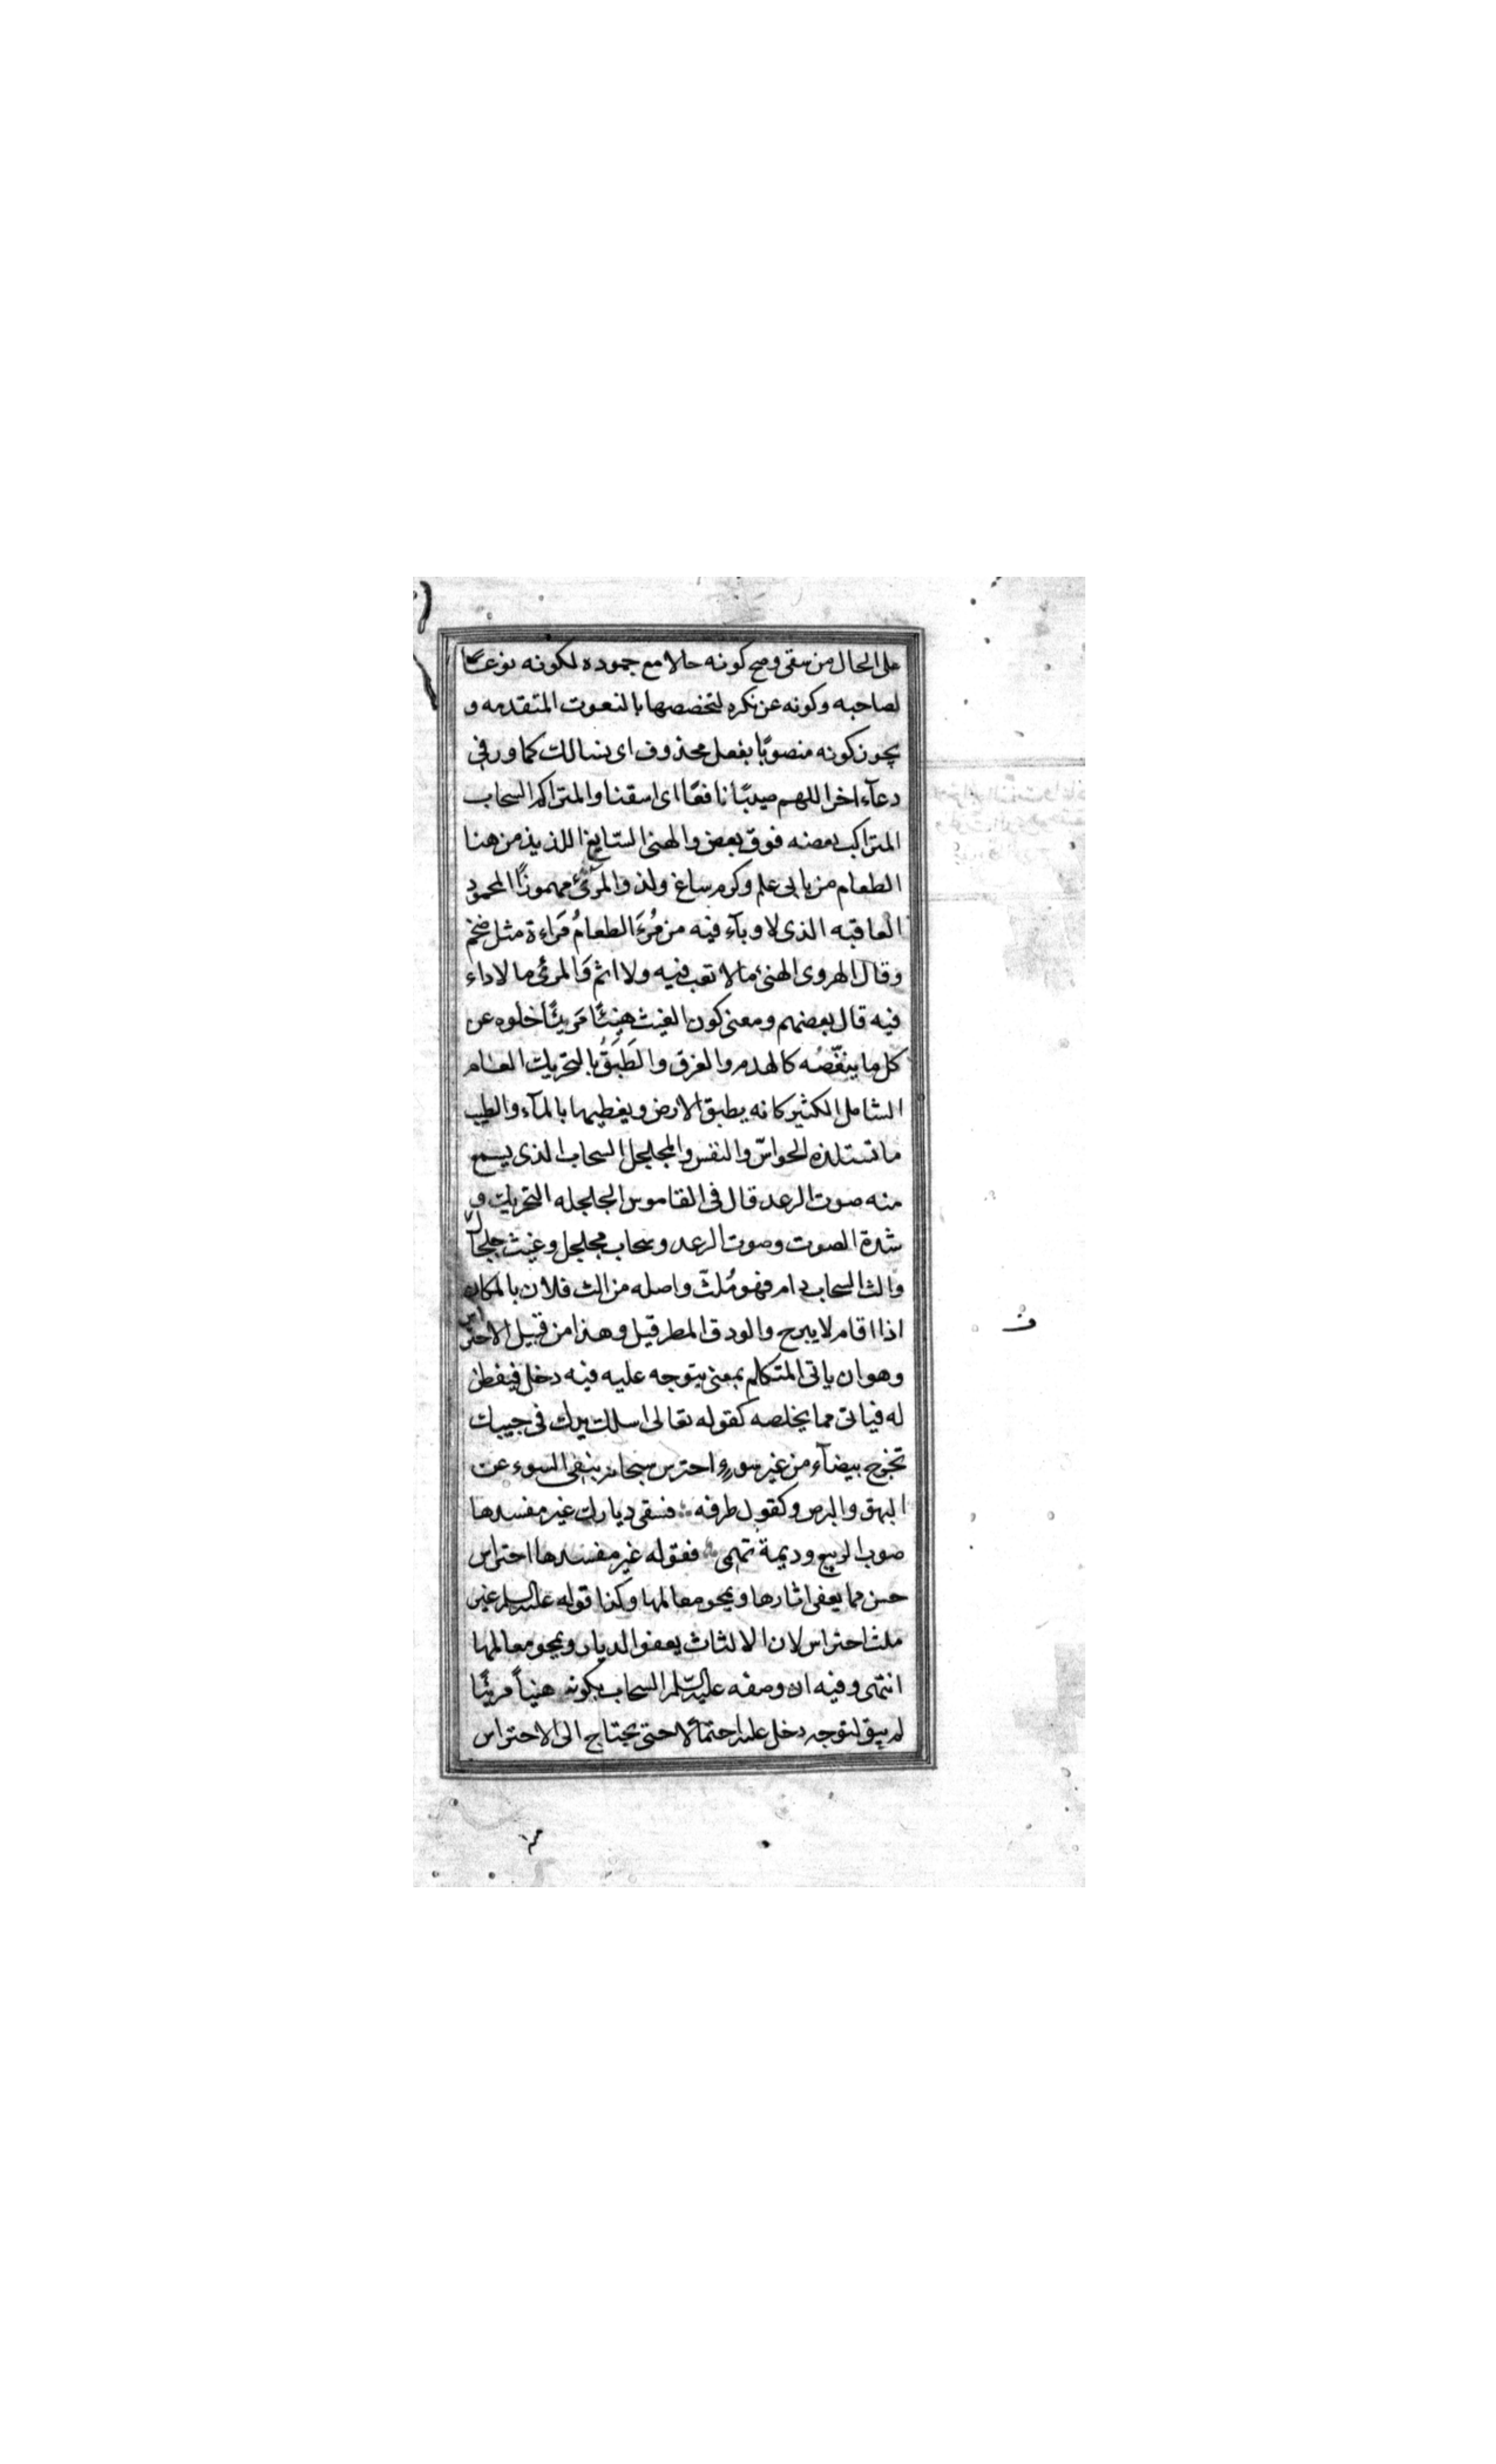 على الحال من سقى وصح كونه حالا مع جموده لكونه نوعًا
لصاحبه وكونه عن نكره لتخصصها بالنعوت المتقدمه و
يجوز كونه منصوبًا بفعل محذوف اى نسالك كما ورد فى
دعآء اخر اللهم صيبًا نافعًا اى اسقنا والمتراكم السحاب
المتراكب بعضه فوق بعض والهنئ السايغ اللذيذ من هنا
الطعام من بابى علم وكرم ساغ ولذ والمرئ مهموزًا المحمود
العاقبه الذى لا وبآء فيه من مُرءَ الطعامُ مَراءة مثل ضخم
وقال الهروى الهنئ ما لا تعب فيه ولا اثم وَالمرئ ما لا داء
فيه قال بعضهم ومعنى كون الغيث هنيئًا مَريئًا خلوه عن
كل ما ينغّصُه كالهدم والغرق والطَبَقُ بالتحريك العام
الشامل الكثير كانه يطبق الارض ويغطيها بالمآء والطيب
ما تستلذه الحواسّ والنفس والمجلجل السحاب الذى يسمع
منه صوت الرعد قال فى القاموس الجلجله التحريك و
شدة الصوت وصوت الرعد وسحاب مجلجل وغيث جلجال
والث السحاب دام فهو مُلثّ واصله من الث فلان بالمكان
اذا اقام لا يبرح والودق المطر قيل وهذا من قبيل الاحتراس
وهو ان ياتى المتكلم بمعنى يتوجه عليه فيه دخل فيفطن
له فياتى مما يخلصه كقوله تعالى اسلك يدك فى جيبك
تخرج بيضآء من غير سوء احترس سبحانه بنفى السوء عن
البهق والبرص وكقول طرفه فسقى ديارك غير مفسدها
صوب الربيع وديمة تهمى فقوله غير مفسدها احتراس
حسن مما يعفى اثارها ويمحو معالمها وكذا قوله عليه السلم غير
ملث احتراس لان الالثاث يعفو الديار ويمحو معالمها
انتهى وفيه ان وصفه عليه السّلم السحاب بكونه هنيأً مريئًا
لم يبق لتوجه دخل عليه احتمالا حتى يحتاج الى الاحتراس